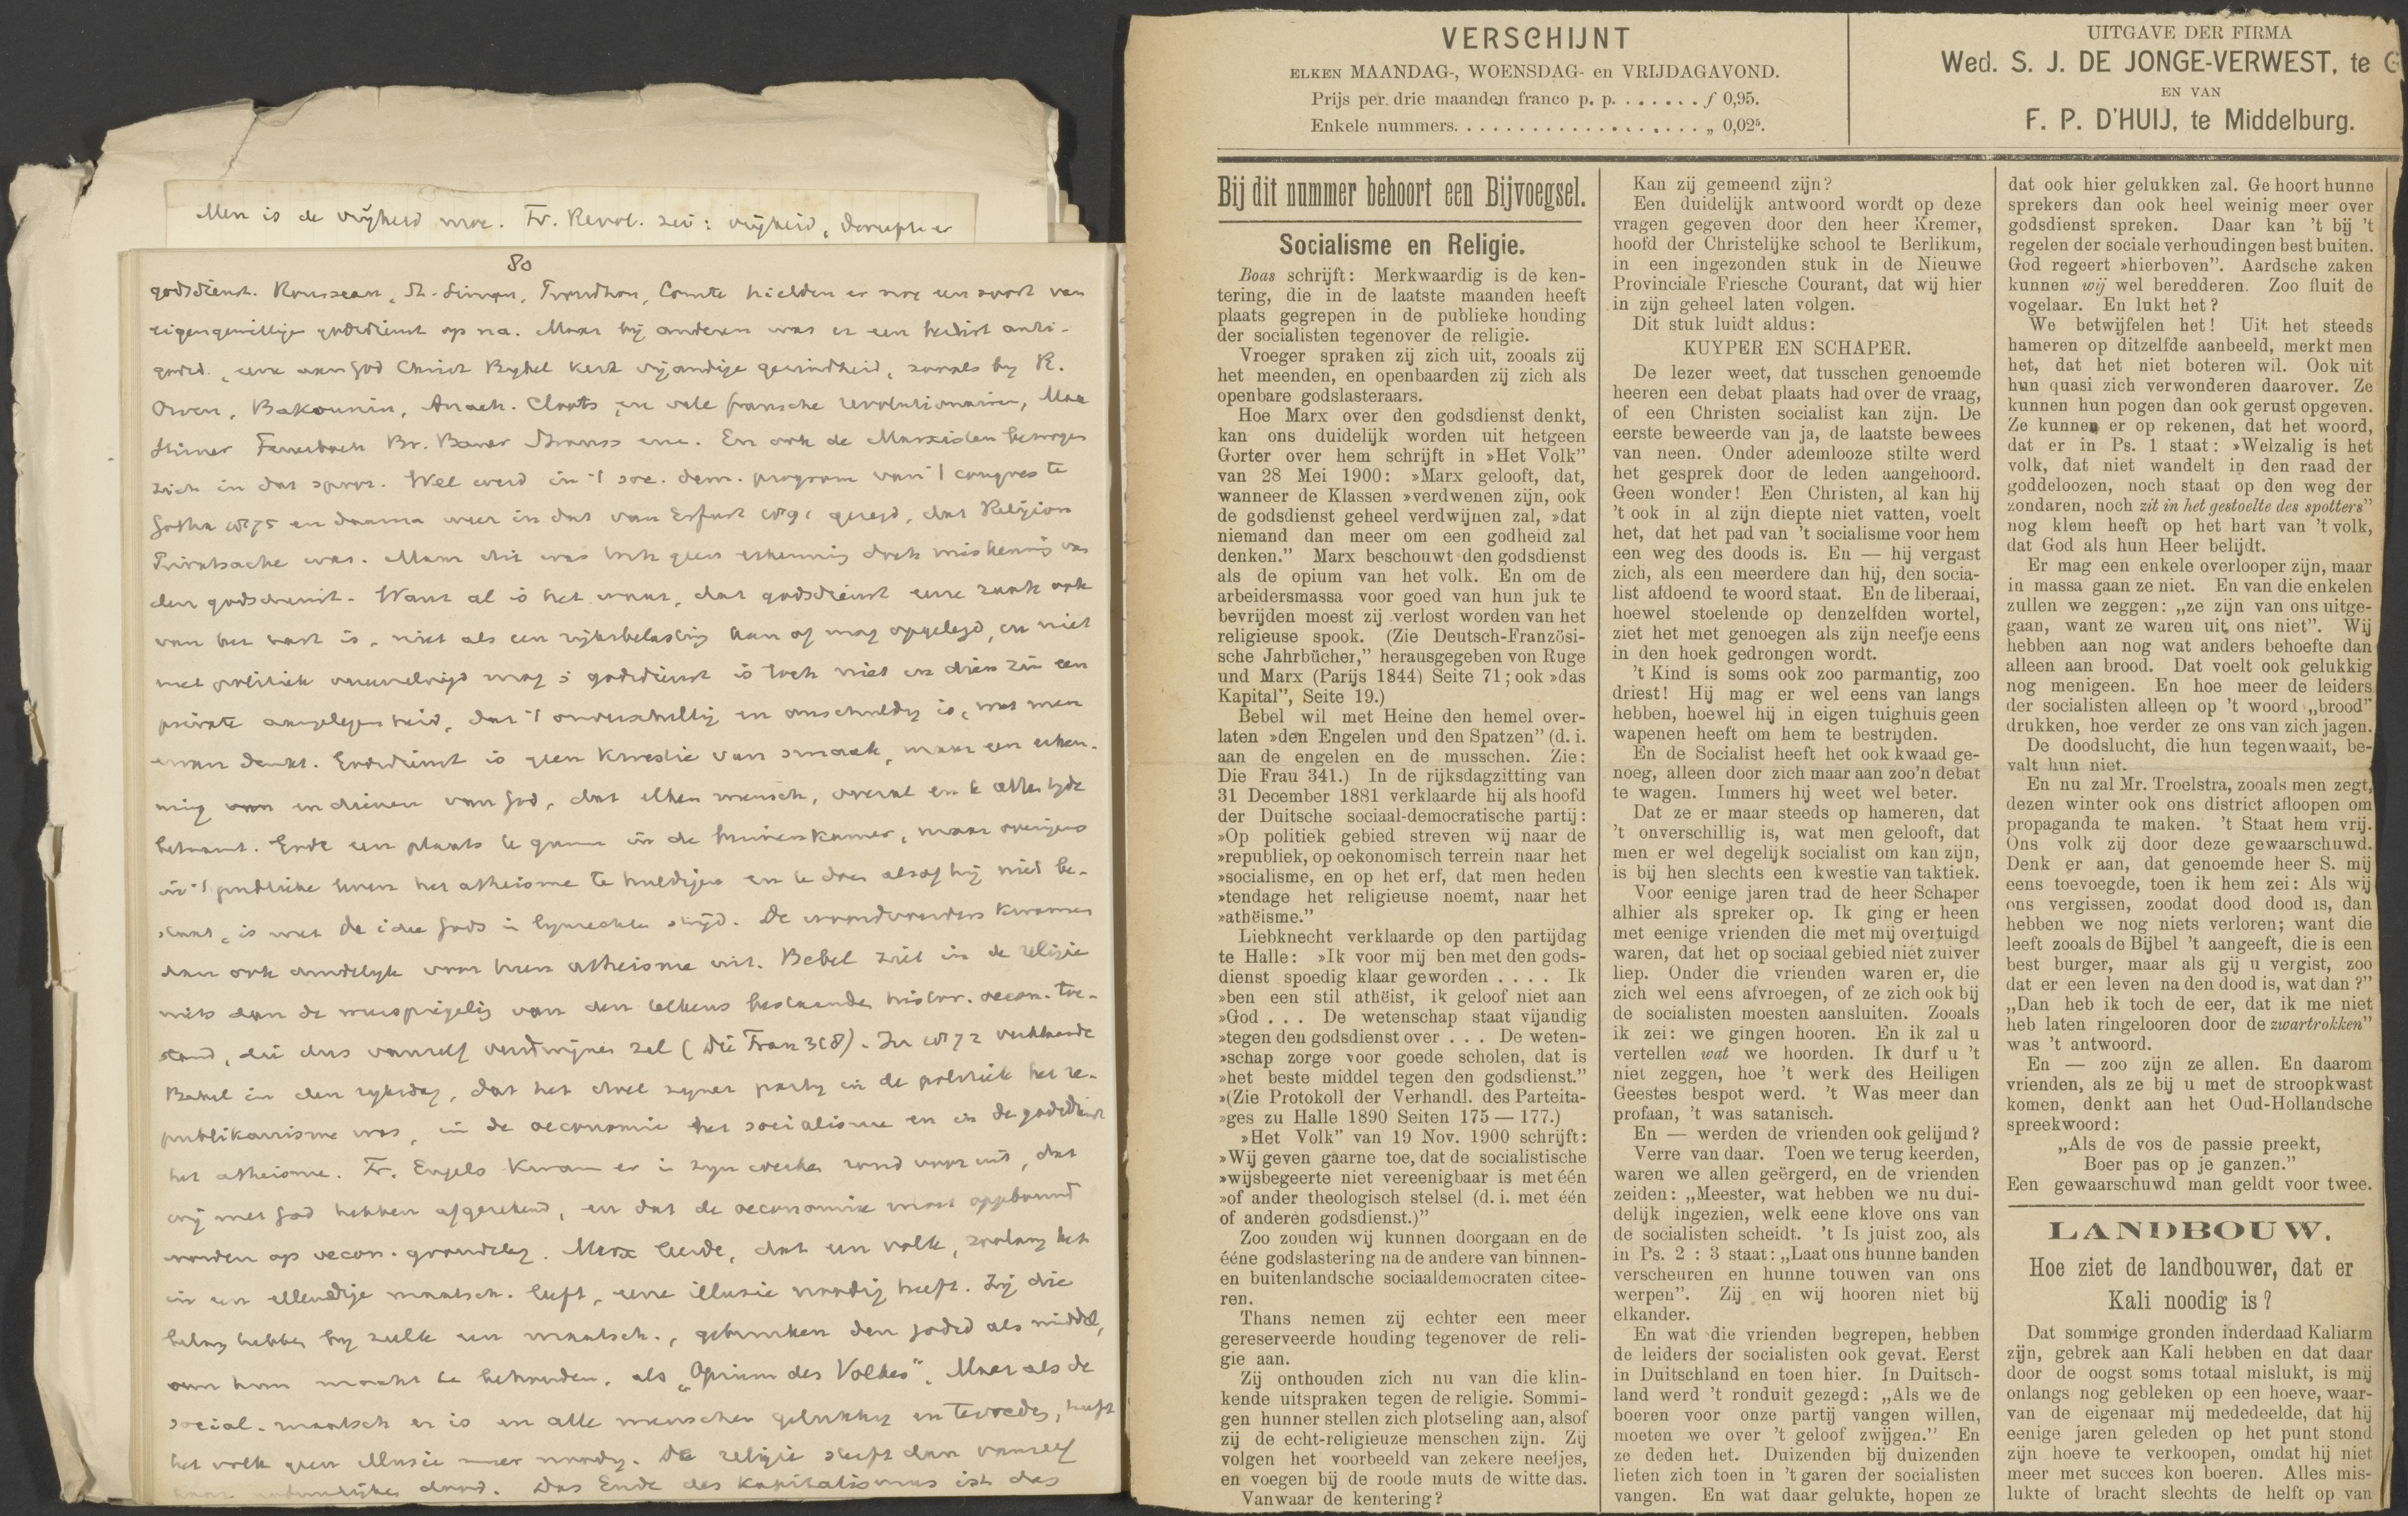 Men is de vrijheid moe. Fr. Revol. zei: vrijheid,
80
godsdienst. Rousseau, St. Simon, Proudhon, Comte hielden er nog een soort van
eigengewillige godsdienst op na. Maar bij anderen was er een beslist anti-
godsd., eene aan God Christ Bijbel Kerk vijandige gezindheid, zooals by R.
Owen, Bakounin, Anach. Cloots, en vele fransche revolutionairen, Max
Stirner Feuerbach Br. Bauer Strauss enz. En ook de Marxisten bewogen
zich in dat spoor. Wel werd in 't soc. dem. program van 't congres te
Gotha 1875 en daarna weer in dat van Erfurt 1891 gezegd, dat Religion
Privatsache was. Maar dit was toch geen erkenning doch miskenning van
den godsdienst. Want al is het waar, dat godsdienst eene zaak ook
van het hart is, niet als een rijksbelasting kan of mag opgelegd, en niet
met politiek vermengd mag; godsdienst is toch niet in dien zin een
private aangelegenheid, dat 't onverschillig en onschuldig is, wat men
ervan denkt. Godsdienst is geen kwestie van smaak, maar een erken-
ning en dienen van God, dat elken mensch, overal en te allen tyde
betaamt. Gode een plaats te gunnen in de binnenkamer, maar overigens
in 't publieke leven het atheisme te huldigen en te doen alsof hij niet be-
staat, is met de idee Gods in lynrechten strijd. De woordvoerders kwamen
dan ook duidelyk voor hun atheisme uit. Bebel ziet in de religie
niets dan de weerspiegeling van den telkens bestaanden histor. oecon. toe-
stand, die dus vanzelf verdwijnen zal (Die Frau 318). In 1872 verklaarde
Bebel in den rijksdag, dat het doel zyner party in de politiek het re-
publikanisme was, in de oeconomie het socialisme en in de godsdienst
het atheisme. Fr. Engels kwam er in zyn werken rond voor uit, dat
wij met God hebben afgerekend, en dat de oeconomie moet opgebouwd
worden op oecon. grondslag. Marx leerde, dat een volk, zoolang het
in een ellendige maatsch. leeft, eene illusie noodig heeft. Zij die
belang hebben by zulk een maatsch., gebruiken den godsd als middel,
om hun macht te behouden, als „Opium des Volkes". Maar als de
social. maatsch er is en alle menschen gelukkig en tevreden, heeft
het volk geen illusie meer noodig. De religie sterft dan vanzelf
haar natuurlijken dood. Das Ende des Kapitalismus ist das
VERSCHIJNT
ELKEN MAANDAG-, WOENSDAG- en VRIJDAGAVOND.
Prijs per drie maanden franco p. p. . . . . . . . f 0,95.
Enkele nummers. . . . . . . . . . . . . . . . . . . . „ 0,02⁵.
UITGAVE DER FIRMA
Wed. S. J. DE JONGE-VERWEST, te G
EN VAN
F. P. D'HUIJ, te Middelburg.
Bij dit nummer behoort een Bijvoegsel.
Socialisme en Religie.
Boas schrijft: Merkwaardig is de ken-
tering, die in de laatste maanden heeft
plaats gegrepen in de publieke houding
der socialisten tegenover de religie.
Vroeger spraken zij zich uit, zooals zij
het meenden, en openbaarden zij zich als
openbare godslasteraars.
Hoe Marx over den godsdienst denkt,
kan ons duidelijk worden uit hetgeen
Gorter over hem schrijft in »Het Volk”
van 28 Mei 1900: »Marx gelooft, dat,
wanneer de Klassen »verdwenen zijn, ook
de godsdienst geheel verdwijnen zal, »dat
niemand dan meer om een godheid zal
denken.” Marx beschouwt den godsdienst
als de opium van het volk. En om de
arbeidersmassa voor goed van hun juk te
bevrijden moest zij verlost worden van het
religieuse spook. (Zie Deutsch-Französi-
sche Jahrbücher,” herausgegeben von Ruge
und Marx (Parijs 1844) Seite 71; ook »das
Kapital”, Seite 19.)
Bebel wil met Heine den hemel over-
laten »den Engelen und den Spatzen” (d. i.
aan de engelen en de musschen. Zie:
Die Frau 341.) In de rijksdagzitting van
31 December 1881 verklaarde hij als hoofd
der Duitsche sociaal-democratische partij:
»Op politiek gebied streven wij naar de
»republiek, op oekonomisch terrein naar het
»socialisme, en op het erf, dat men heden
»tendage het religieuse noemt, naar het
»athëisme.”
Liebknecht verklaarde op den partijdag
te Halle: »Ik voor mij ben met den gods-
dienst spoedig klaar geworden . . . . Ik
»ben een stil athëist, ik geloof niet aan
»God . . . De wetenschap staat vijandig
»tegen den godsdienst over . . . De weten-
»schap zorge voor goede scholen, dat is
»het beste middel tegen den godsdienst.”
»(Zie Protokoll der Verhandl. des Parteita-
»ges zu Halle 1890 Seiten 175 — 177.)
»Het Volk” van 19 Nov. 1900 schrijft:
»Wij geven gaarne toe, dat de socialistische
»wijsbegeerte niet vereenigbaar is met één
»of ander theologisch stelsel (d. i. met één
of anderen godsdienst.)”
Zoo zouden wij kunnen doorgaan en de
ééne godslastering na de andere van binnen-
en buitenlandsche sociaaldemocraten citee-
ren.
Thans nemen zij echter een meer
gereserveerde houding tegenover de reli-
gie aan.
Zij onthouden zich nu van die klin-
kende uitspraken tegen de religie. Sommi-
gen hunner stellen zich plotseling aan, alsof
zij de echt-religieuze menschen zijn. Zij
volgen het voorbeeld van zekere neefjes,
en voegen bij de roode muts de witte das.
Vanwaar de kentering?
Kan zij gemeend zijn?
Een duidelijk antwoord wordt op deze
vragen gegeven door den heer Kremer,
hoofd der Christelijke school te Berlikum,
in een ingezonden stuk in de Nieuwe
Provinciale Friesche Courant, dat wij hier
in zijn geheel laten volgen.
Dit stuk luidt aldus:
KUYPER EN SCHAPER.
De lezer weet, dat tusschen genoemde
heeren een debat plaats had over de vraag,
of een Christen socialist kan zijn. De
eerste beweerde van ja, de laatste bewees
van neen. Onder ademlooze stilte werd
het gesprek door de leden aangehoord.
Geen wonder! Een Christen, al kan hij
't ook in al zijn diepte niet vatten, voelt
het, dat het pad van 't socialisme voor hem
een weg des doods is. En — hij vergast
zich, als een meerdere dan hij, den socia-
list afdoend te woord staat. En de liberaal,
hoewel stoelende op denzelfden wortel,
ziet het met genoegen als zijn neefje eens
in den hoek gedrongen wordt.
't Kind is soms ook zoo parmantig, zoo
driest! Hij mag er wel eens van langs
hebben, hoewel hij in eigen tuighuis geen
wapenen heeft om hem te bestrijden.
En de Socialist heeft het ook kwaad ge-
noeg, alleen door zich maar aan zoo'n debat
te wagen. Immers hij weet wel beter.
Dat ze er maar steeds op hameren, dat
't onverschillig is, wat men gelooft, dat
men er wel degelijk socialist om kan zijn,
is bij hen slechts een kwestie van taktiek.
Voor eenige jaren trad de heer Schaper
alhier als spreker op. Ik ging er heen
met eenige vrienden die met mij overtuigd
waren, dat het op sociaal gebied niet zuiver
liep. Onder die vrienden waren er, die
zich wel eens afvroegen, of ze zich ook bij
de socialisten moesten aansluiten. Zooals
ik zei: we gingen hooren. En ik zal u
vertellen wat we hoorden. Ik durf u 't
niet zeggen, hoe 't werk des Heiligen
Geestes bespot werd. 't Was meer dan
profaan, 't was satanisch.
En — werden de vrienden ook gelijmd?
Verre van daar. Toen we terug keerden,
waren we allen geërgerd, en de vrienden
zeiden: „Meester, wat hebben we nu dui-
delijk ingezien, welk eene klove ons van
de socialisten scheidt. 't Is juist zoo, als
in Ps. 2 : 3 staat: „Laat ons hunne banden
verscheuren en hunne touwen van ons
werpen”. Zij en wij hooren niet bij
elkander.
En wat die vrienden begrepen, hebben
de leiders der socialisten ook gevat. Eerst
in Duitschland en toen hier. In Duitsch-
land werd 't ronduit gezegd: „Als we de
boeren voor onze partij vangen willen,
moeten we over 't geloof zwijgen.” En
ze deden het. Duizenden bij duizenden
lieten zich toen in 't garen der socialisten
vangen. En wat daar gelukte, hopen ze
dat ook hier gelukken zal. Ge hoort hunne
sprekers dan ook heel weinig meer over
godsdienst spreken. Daar kan 't bij 't
regelen der sociale verhoudingen best buiten.
God regeert »hierboven”. Aardsche zaken
kunnen wij wel beredderen. Zoo fluit de
vogelaar. En lukt het?
We betwijfelen het! Uit het steeds
hameren op ditzelfde aanbeeld, merkt men
het, dat het niet boteren wil. Ook uit
hun quasi zich verwonderen daarover. Ze
kunnen hun pogen dan ook gerust opgeven.
Ze kunnen er op rekenen, dat het woord,
dat er in Ps. 1 staat: »Welzalig is het
volk, dat niet wandelt in den raad der
goddeloozen, noch staat op den weg der
zondaren, noch zit in het gestoelte des spotters”
nog klem heeft op het hart van 't volk,
dat God als hun Heer belijdt.
Er mag een enkele overlooper zijn, maar
in massa gaan ze niet. En van die enkelen
zullen we zeggen: „ze zijn van ons uitge-
gaan, want ze waren uit ons niet”. Wij
hebben aan nog wat anders behoefte dan
alleen aan brood. Dat voelt ook gelukkig
nog menigeen. En hoe meer de leiders
der socialisten alleen op 't woord „brood”
drukken, hoe verder ze ons van zich jagen.
De doodslucht, die hun tegenwaait, be-
valt hun niet.
En nu zal Mr. Troelstra, zooals men zegt,
dezen winter ook ons district afloopen om
propaganda te maken. 't Staat hem vrij.
Ons volk zij door deze gewaarschuwd.
Denk er aan, dat genoemde heer S. mij
eens toevoegde, toen ik hem zei: Als wij
ons vergissen, zoodat dood dood is, dan
hebben we nog niets verloren; want die
leeft zooals de Bijbel 't aangeeft, die is een
best burger, maar als gij u vergist, zoo
dat er een leven na den dood is, wat dan?”
„Dan heb ik toch de eer, dat ik me niet
heb laten ringelooren door de zwartrokken”
was 't antwoord.
En — zoo zijn ze allen. En daarom
vrienden, als ze bij u met de stroopkwast
komen, denkt aan het Oud-Hollandsche
spreekwoord:
„Als de vos de passie preekt,
Boer pas op je ganzen.”
Een gewaarschuwd man geldt voor twee.
LANDBOUW.
Hoe ziet de landbouwer, dat er
Kali noodig is?
Dat sommige gronden inderdaad Kaliarm
zijn, gebrek aan Kali hebben en dat daar
door de oogst soms totaal mislukt, is mij
onlangs nog gebleken op een hoeve, waar-
van de eigenaar mij mededeelde, dat hij
eenige jaren geleden op het punt stond
zijn hoeve te verkoopen, omdat hij niet
meer met succes kon boeren. Alles mis-
lukte of bracht slechts de helft op van